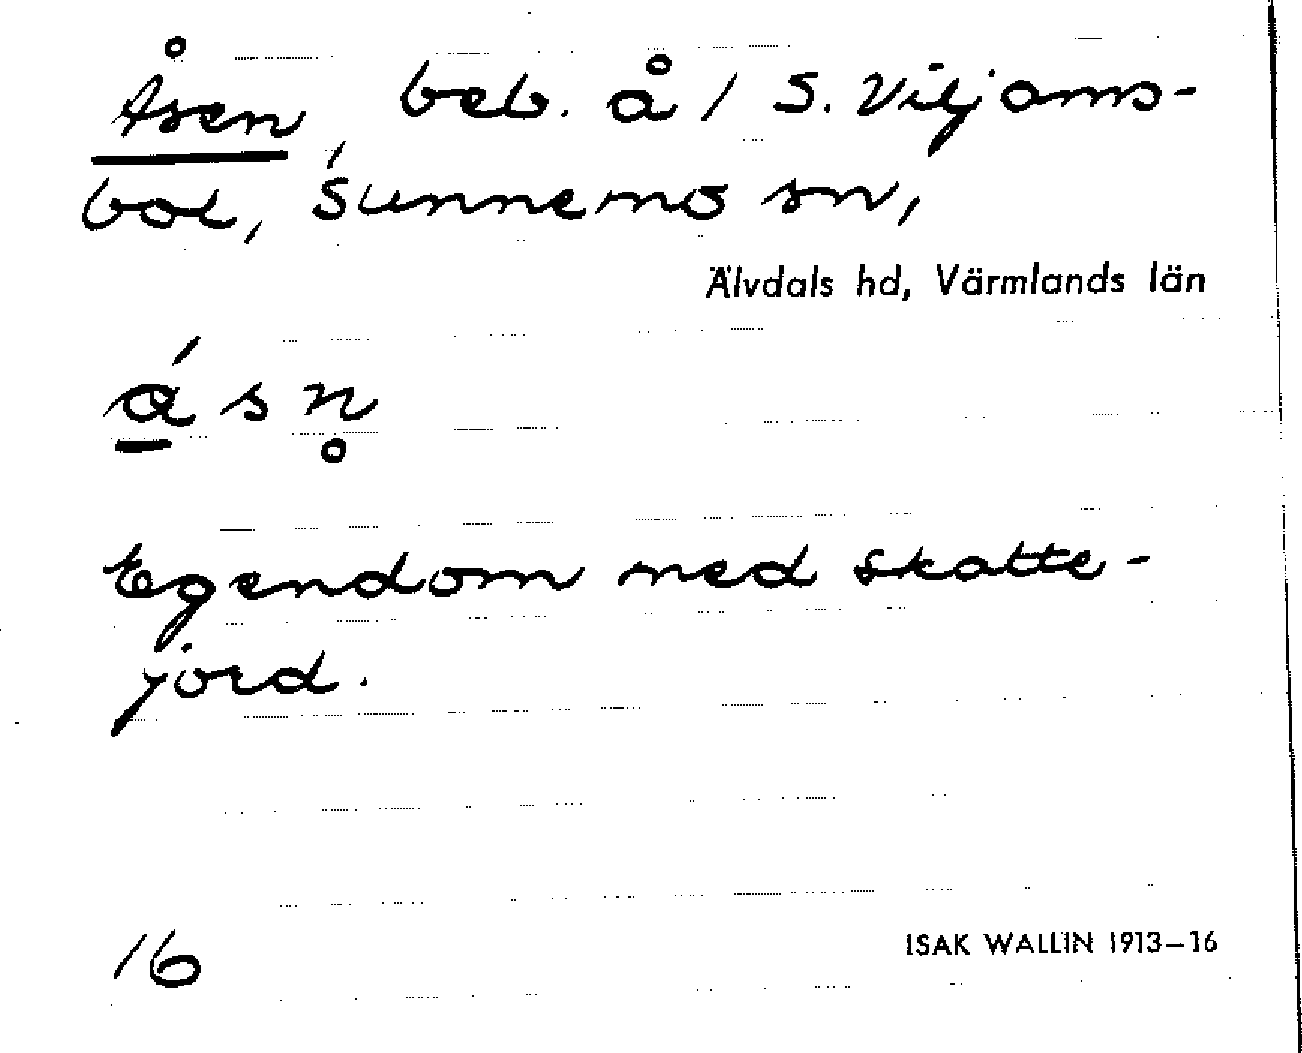 Åsen, beb. å / S. Viljams-
bol, Sunnemo sn,
Älvdals hd, Värmlands län
á s n̥
Egendom med skatte-
jord.
16
ISAK WALLIN 1913–16